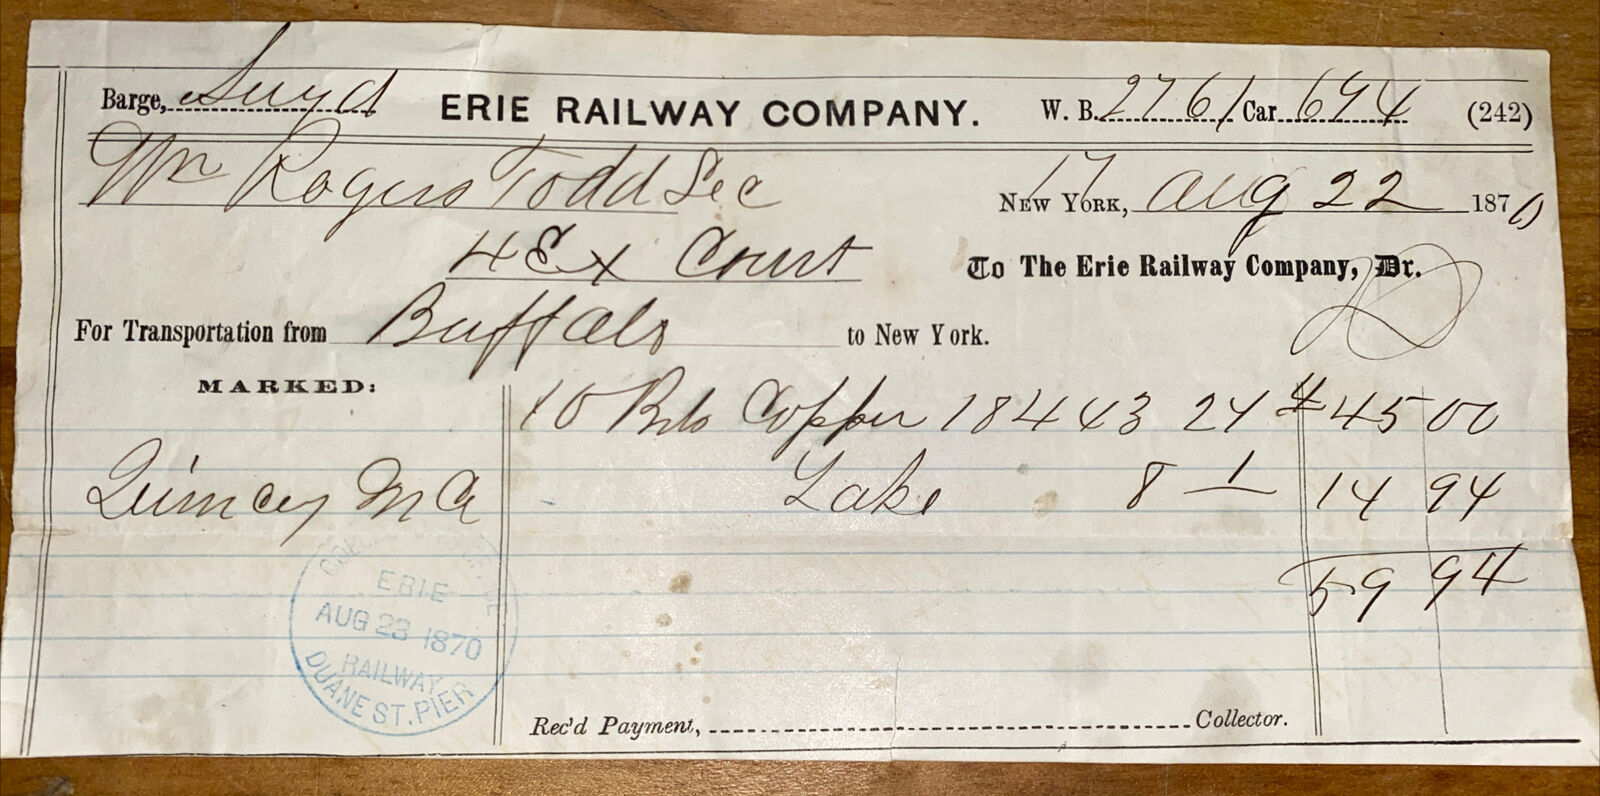 Barge, Suyd ERIE RAILWAY COMPANY. W. B. 2761 Car 694 (242)
Wm Rogers Todd Sec
17
NEW YORK, Aug 22 1870
4 Ex Court
To The Erie Railway Company, Dr.
For Transportation from Buffalo to New York.
MARKED:
10 Bbls Copper 18443 24 45 00
Quincy M Co
Lake 8 1 14 94
59 94
ERIE
AUG 23 1870
RAILWAY
DUANE ST. PIER
Rec'd Payment, Collector.